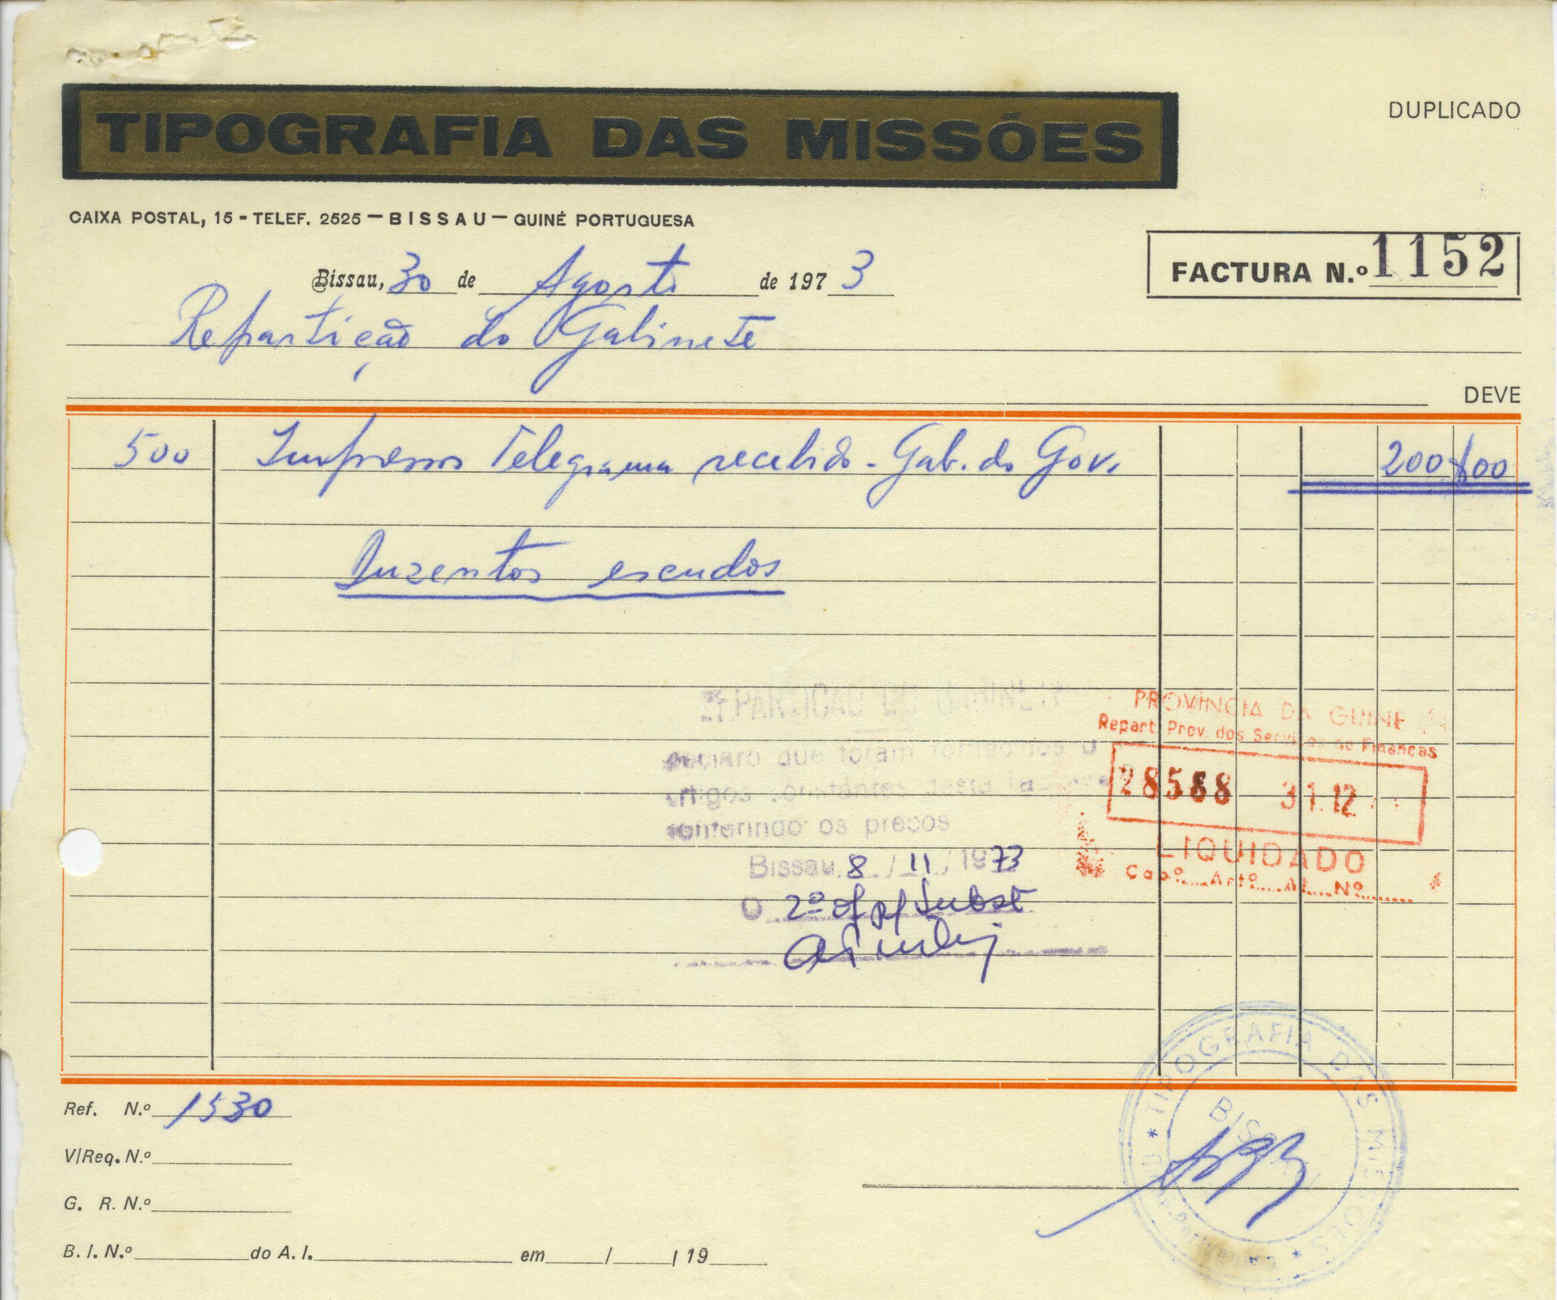 TIPOGRAFIA DAS MISSÕES
DUPLICADO
CAIXA POSTAL, 15 - TELEF. 2525 — BISSAU — GUINÉ PORTUGUESA
FACTURA N.º 1152
Bissau, 30 de Agosto de 1973
Repartição do Gabinete
DEVE
500 Impressos Telegrama recebido - Gab. do Gov. 200$00
Duzentos escudos
REPARTIÇÃO DO GABINETE
declaro que foram fornecidos o
artigos constantes desta
conferindo os preços
Bissau, 8 / 11 / 1973
O 2º of pf Subst
PROVINCIA DA GUINÉ
Repart. Prov. dos Serviços de Finanças
28588 31.12
LIQUIDADO
Capº Artº Al. Nº
Ref. N.º 1530
V/Req. N.º
G. R. N.º
B. I. N.º do A. I. em / / 19
* TIPOGRAFIA DAS MISSÕES *
BISSAU